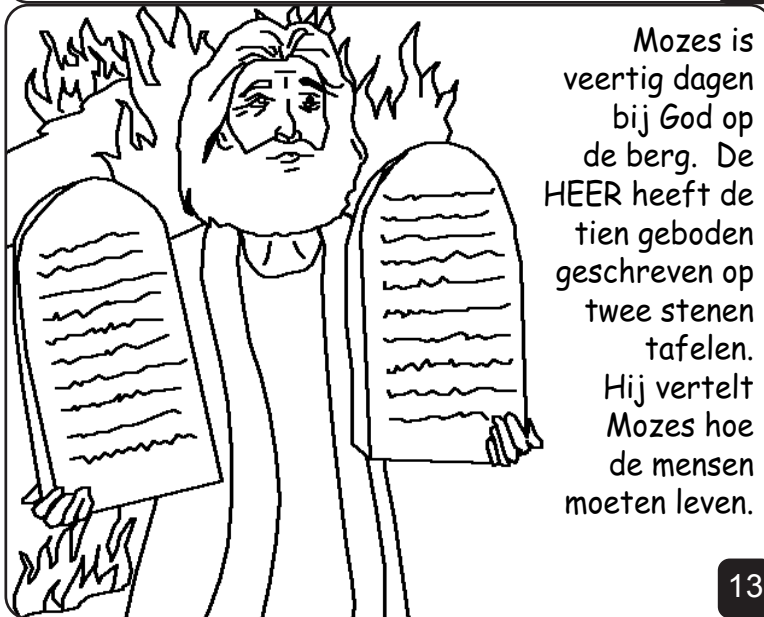 Mozes is
veertig dagen
bij God op
de berg.  De
HEER heeft de
tien geboden
geschreven op
twee stenen
tafelen.
Hij vertelt
Mozes hoe
de mensen
moeten leven.
13